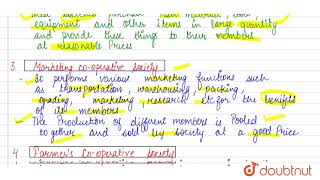 equipment and other items in large quantity
and provide these things to their members
at reasonable Prices
3. Marketing co-operative Society
- It performs various marketing functions such
as transportation, warehousing, packing,
grading, marketing research etc. for the benefits
of its members
- The Production of different members is Pooled
together and sold by society at a good Price
4 Farmer's Co-operative society
doubtnut